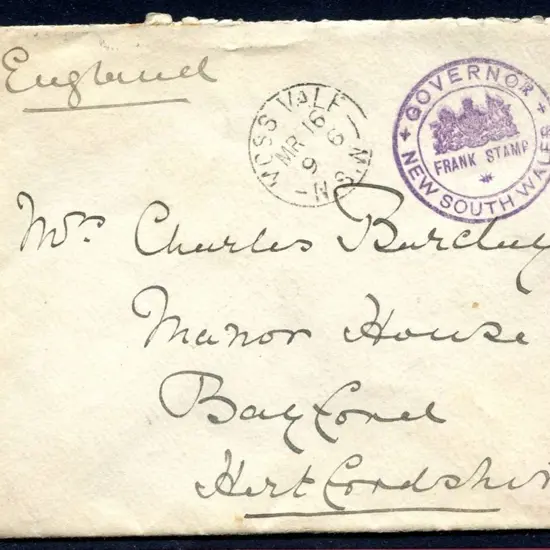 England
MOSS VALE N.S.W
MR 16
96
GOVERNOR
FRANK STAMP
NEW SOUTH WALES
Mrs Charles Barclay
Manor House
Bayford
Hertfordshir